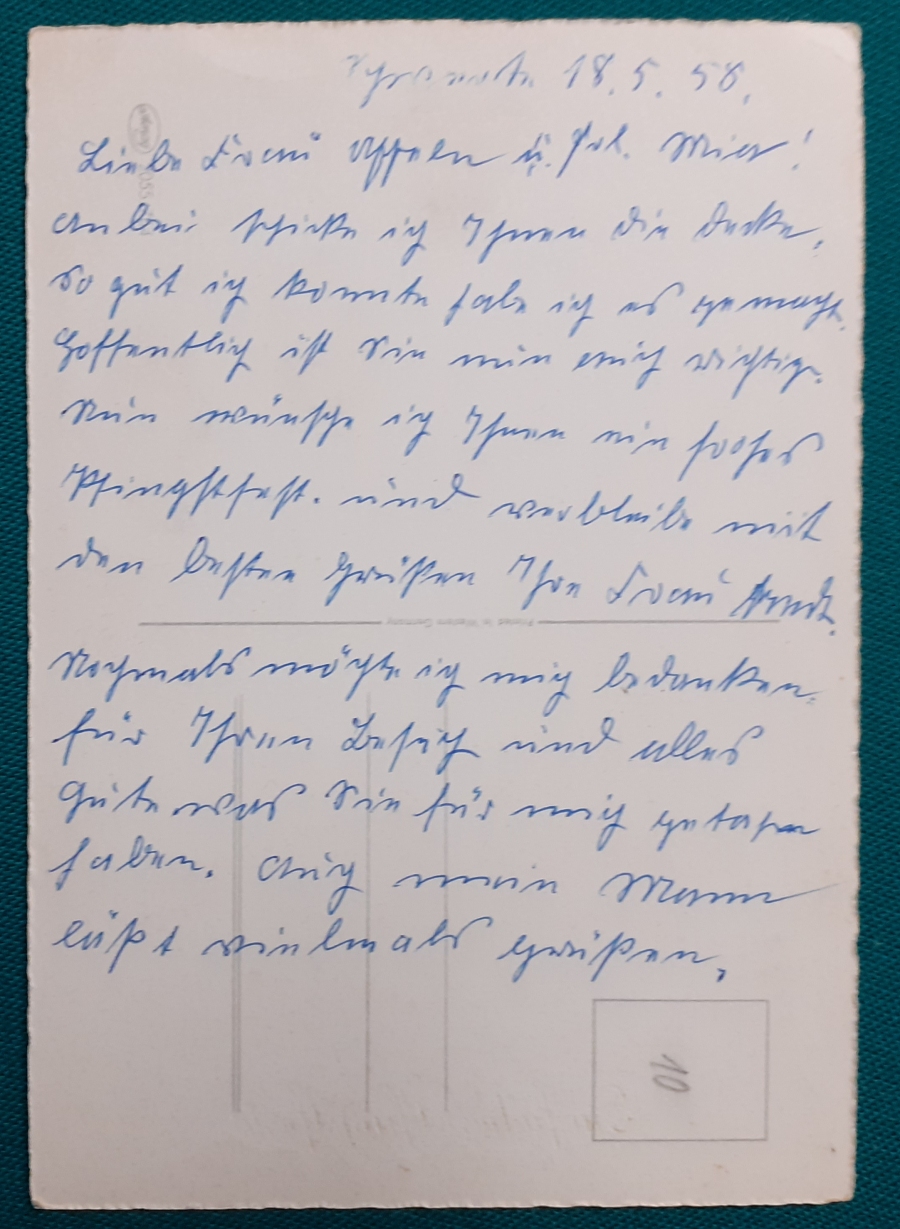 18. 5. 58.
Liebe Frau Appeln u. Frl. Mia!
Anbei schicke ich Ihnen die Decke,
so gut ich konnte habe ich es gemacht.
Hoffentlich ist Sie nun auch richtig.
Nun wünsche ich Ihnen ein frohes
Pfingstfest. und verbleibe mit
den besten Grüßen Ihre Frau Arndt.
Printed in Western Germany
Nochmals möchte ich mich bedanken
für Ihren Besuch und alles
Gute was Sie für mich getan
haben. Auch mein Mann
läßt vielmals grüßen.
10